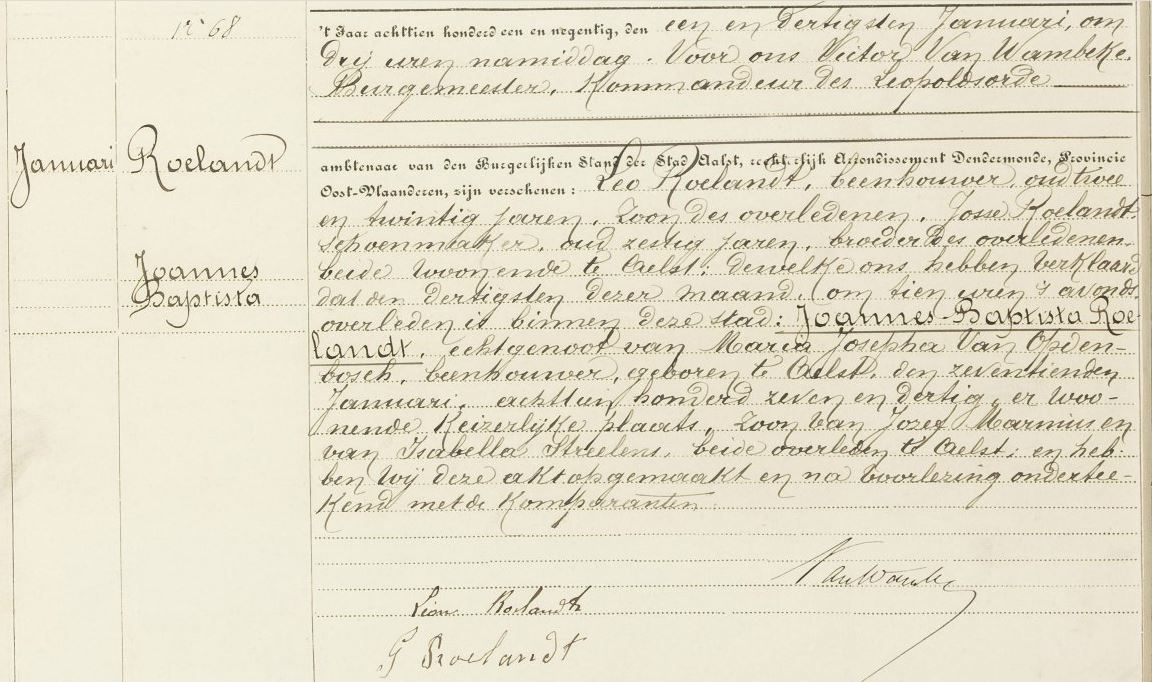 N° 68
't Jaar achttien honderd een en negentig, den een en dertigsten Januari, om
drij uren namiddag. Voor ons Victor Van Wambeke.
Burgemeester, Kommandeur des Leopoldsorde
Januari
Roelandt
Joannes
Baptista
ambtenaar van den Burgerlijken Stand der Stad Aalst, rechterlijk Arrondissement Dendermonde, Provincie
Oost-Vlaanderen, zijn verschenen: Leo Roelandt, beenhouwer, oud twee
en twintig jaren, zoon des overledenen, Josse Roelandt
schoenmaker, oud zestig jaren, broeder des overledenen
beide woonende te Aelst; dewelke ons hebben verklaard
dat den dertigsten dezer maand, om tien uren 's avonds
overleden is binnen deze stad: Joannes-Baptista Roe-
landt, echtgenoot van Maria Josepha Van Opden-
bosch, beenhouwer, geboren te Aelst, den zeventienden
Januari, achttien honderd zeven en dertig, er woo-
nende Keizerlijke plaats, zoon van Jozef Marinus en
van Isabella Streelens, beide overleden te Aelst; en heb-
ben wij deze akt opgemaakt en na voorlezing ondertee-
kend met de komparanten.
VanWambeke
Léon Roelandt
G Roelandt